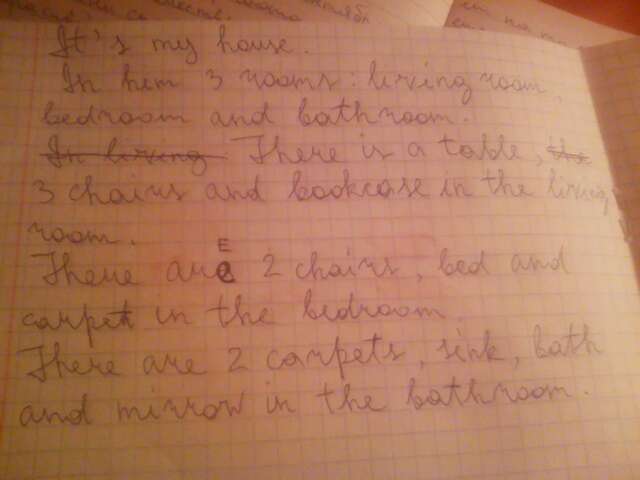 It's my house.
In him 3 rooms: living room,
bedroom and bathroom.
In living There is a table, the
3 chairs and bookcase in the living
room.
E
There are 2 chairs, bed and
carpet in the bedroom.
There are 2 carpets, sink, bath
and mirrow in the bathroom.